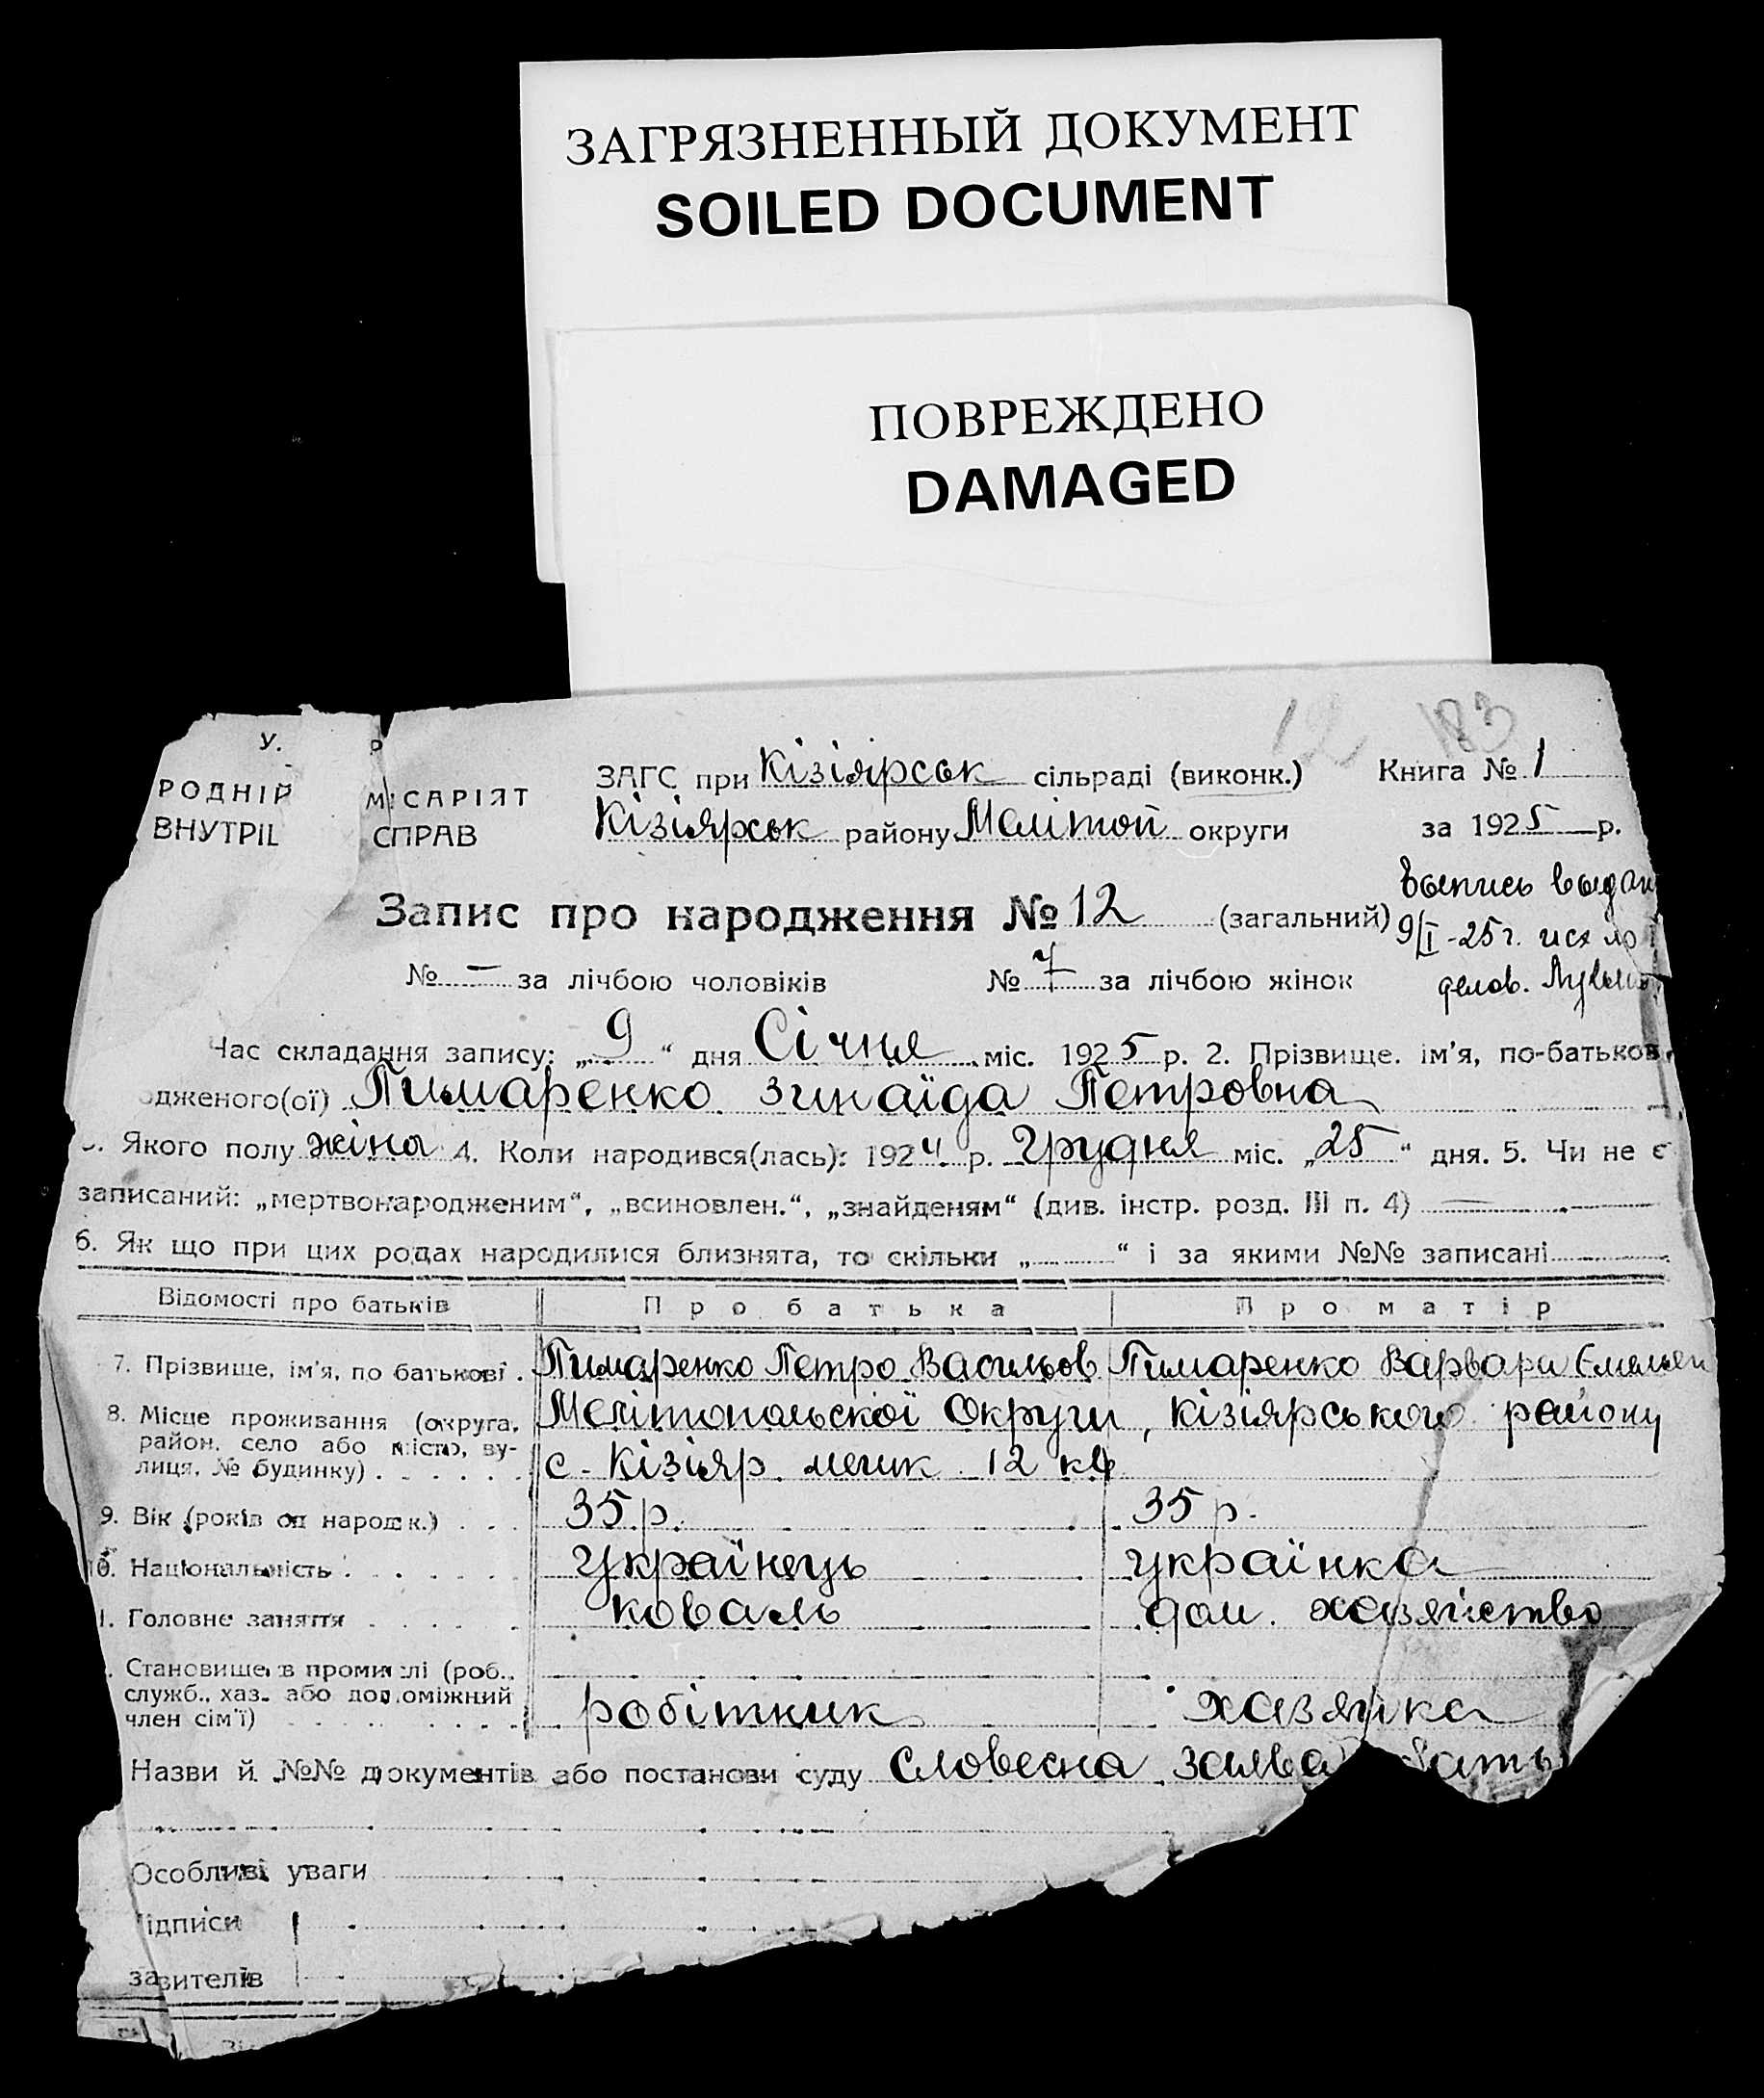 ЗАГРЯЗНЕННЫЙ ДОКУМЕНТ
SOILED DOCUMENT
ПОВРЕЖДЕНО
DAMAGED
12 183
У. Р
РОДНІЙ МІСАРІЯТ
ВНУТРІ СПРАВ
ЗАГС при Кізіярськ сільраді (виконк.) Книга № 1
Кізіярськ району Меліто́п округи за 1925 р.
Запис про народження № 12 (загальний)
выпись выдан
9/I-25 г. исх №
делов.
№ — за лічбою чоловіків № 7 за лічбою жінок
Час складання запису: „9“ дня Січня міс. 1925 р. 2. Прізвище, ім'я, по-батьков
одженого(ої) Пимаренко Зинаїда Петровна
3. Якого полу жіна 4. Коли народився(лась): 1924 р. Грудня міс. „25“ дня. 5. Чи не є
записаний: „мертвонародженим“, „всиновлен.“, „знайденям“ (див. інстр. розд. III п. 4)
6. Як що при цих родах народилися близнята, то скільки „ “ і за якими №№ записані
Відомості про батьків Про батька Про матір
7. Прізвище, ім'я, по батькові Пимаренко Петро Васильов Пимаренко Варвара Емельян
8. Місце проживання (округа, район, село або місто, ву-
лиця, № будинку) Мелітопольскої Округи, Кізіярського району
с. Кізіяр 12 кв
9. Вік (років од народж.) 35 р. 35 р.
10. Національність українець українка
1. Головне заняття коваль дом. хазяйство
Становище в промислі (роб.,
служб., хаз. або допоміжний
член сім'ї) робітник хазяйка
Назви й №№ документів або постанови суду словесна заява бать
Особливі уваги
ідписи
заявителів